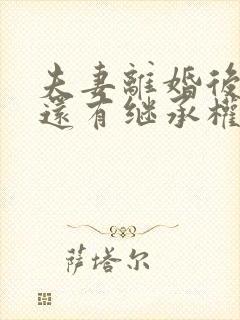 夫妻離婚後
還有继承權
萨塔尔